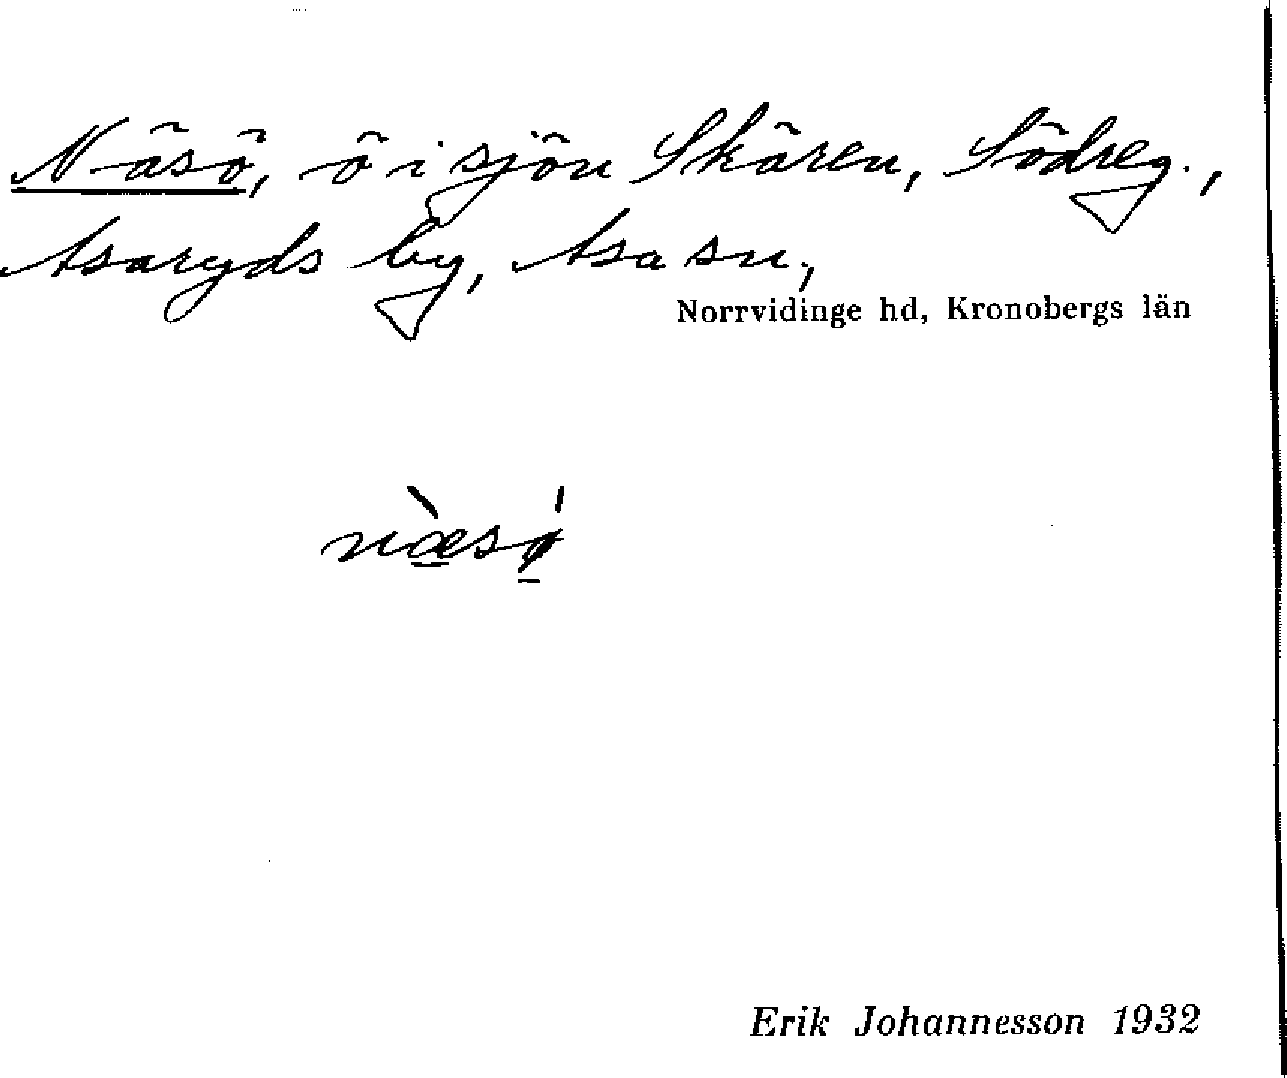 Näsö, ö i sjön Skären, Södreg.,
Asaryds by, Asa sn,
Norrvidinge hd, Kronobergs län
næ̀sø̍
Erik Johannesson 1932